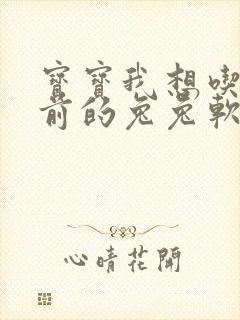 寶寶我想喫
前的兔兔軟
心晴花開